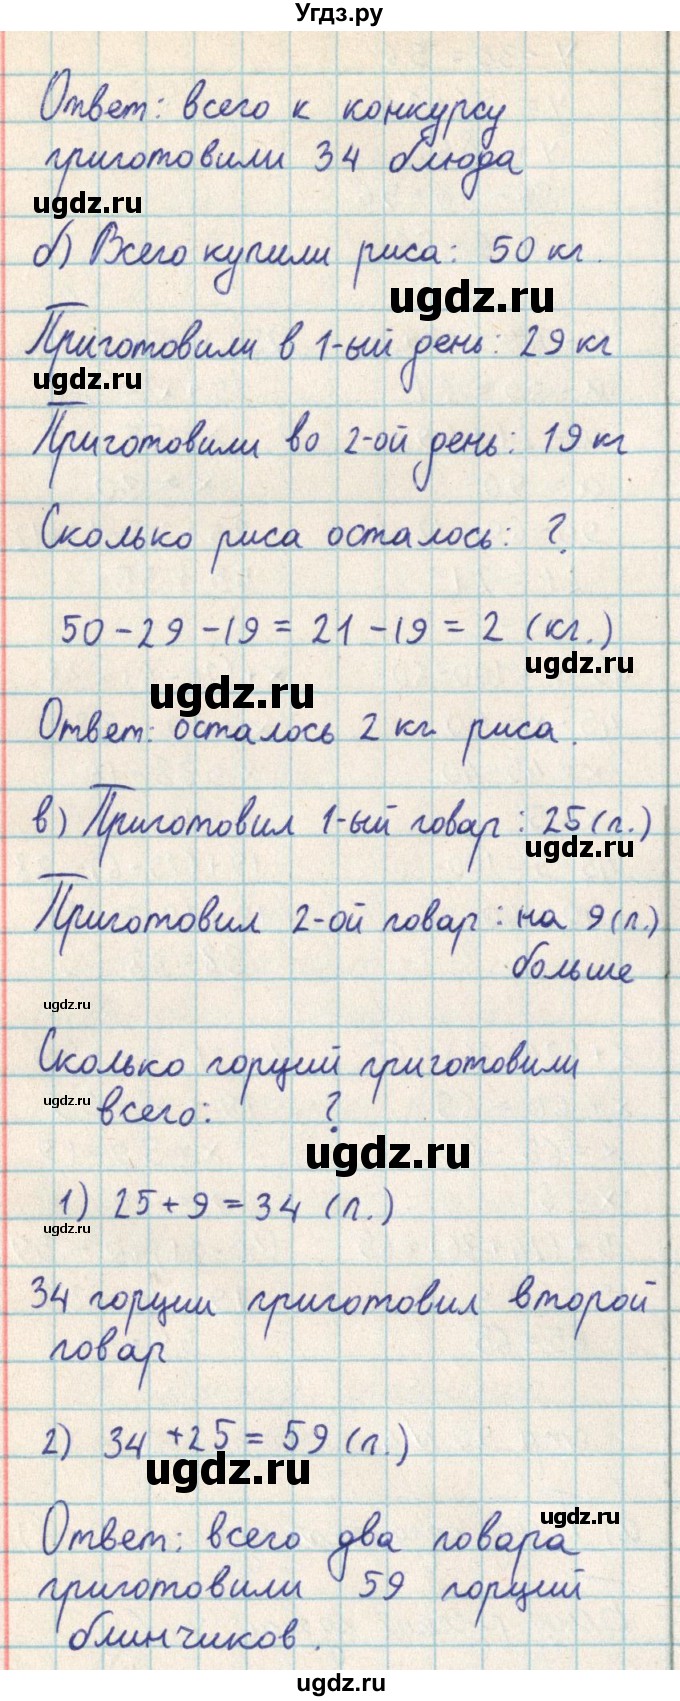 Угдз.ру
Ответ: всего к конкурсу
приготовили 34 блюда
ugdz.ru
б) Всего купили риса: 50 кг.
ugdz.ru
Приготовили в 1-ый день: 29 кг
ugdz.ru
Приготовили во 2-ой день: 19 кг
Сколько риса осталось: ?
50 - 29 - 19 = 21 - 19 = 2 (кг.)
ugdz.ru
ugdz.ru
Ответ: осталось 2 кг. риса.
в) Приготовил 1-ый повар: 25 (п.)
ugdz.ru
Приготовил 2-ой повар: на 9 (п.)
больше
ugdz.ru
Сколько порций приготовили
ugdz.ru
всего: ?
ugdz.ru
1) 25 + 9 = 34 (п.)
ugdz.ru
34 порции приготовил второй
повар
2) 34 + 25 = 59 (п.)
ugdz.ru
ugdz.ru
Ответ: всего два повара
приготовили 59 порций
блинчиков.
ugdz.ru